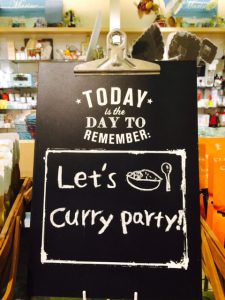 TODAY
is the
DAY TO
REMEMBER:
Let's
curry party!